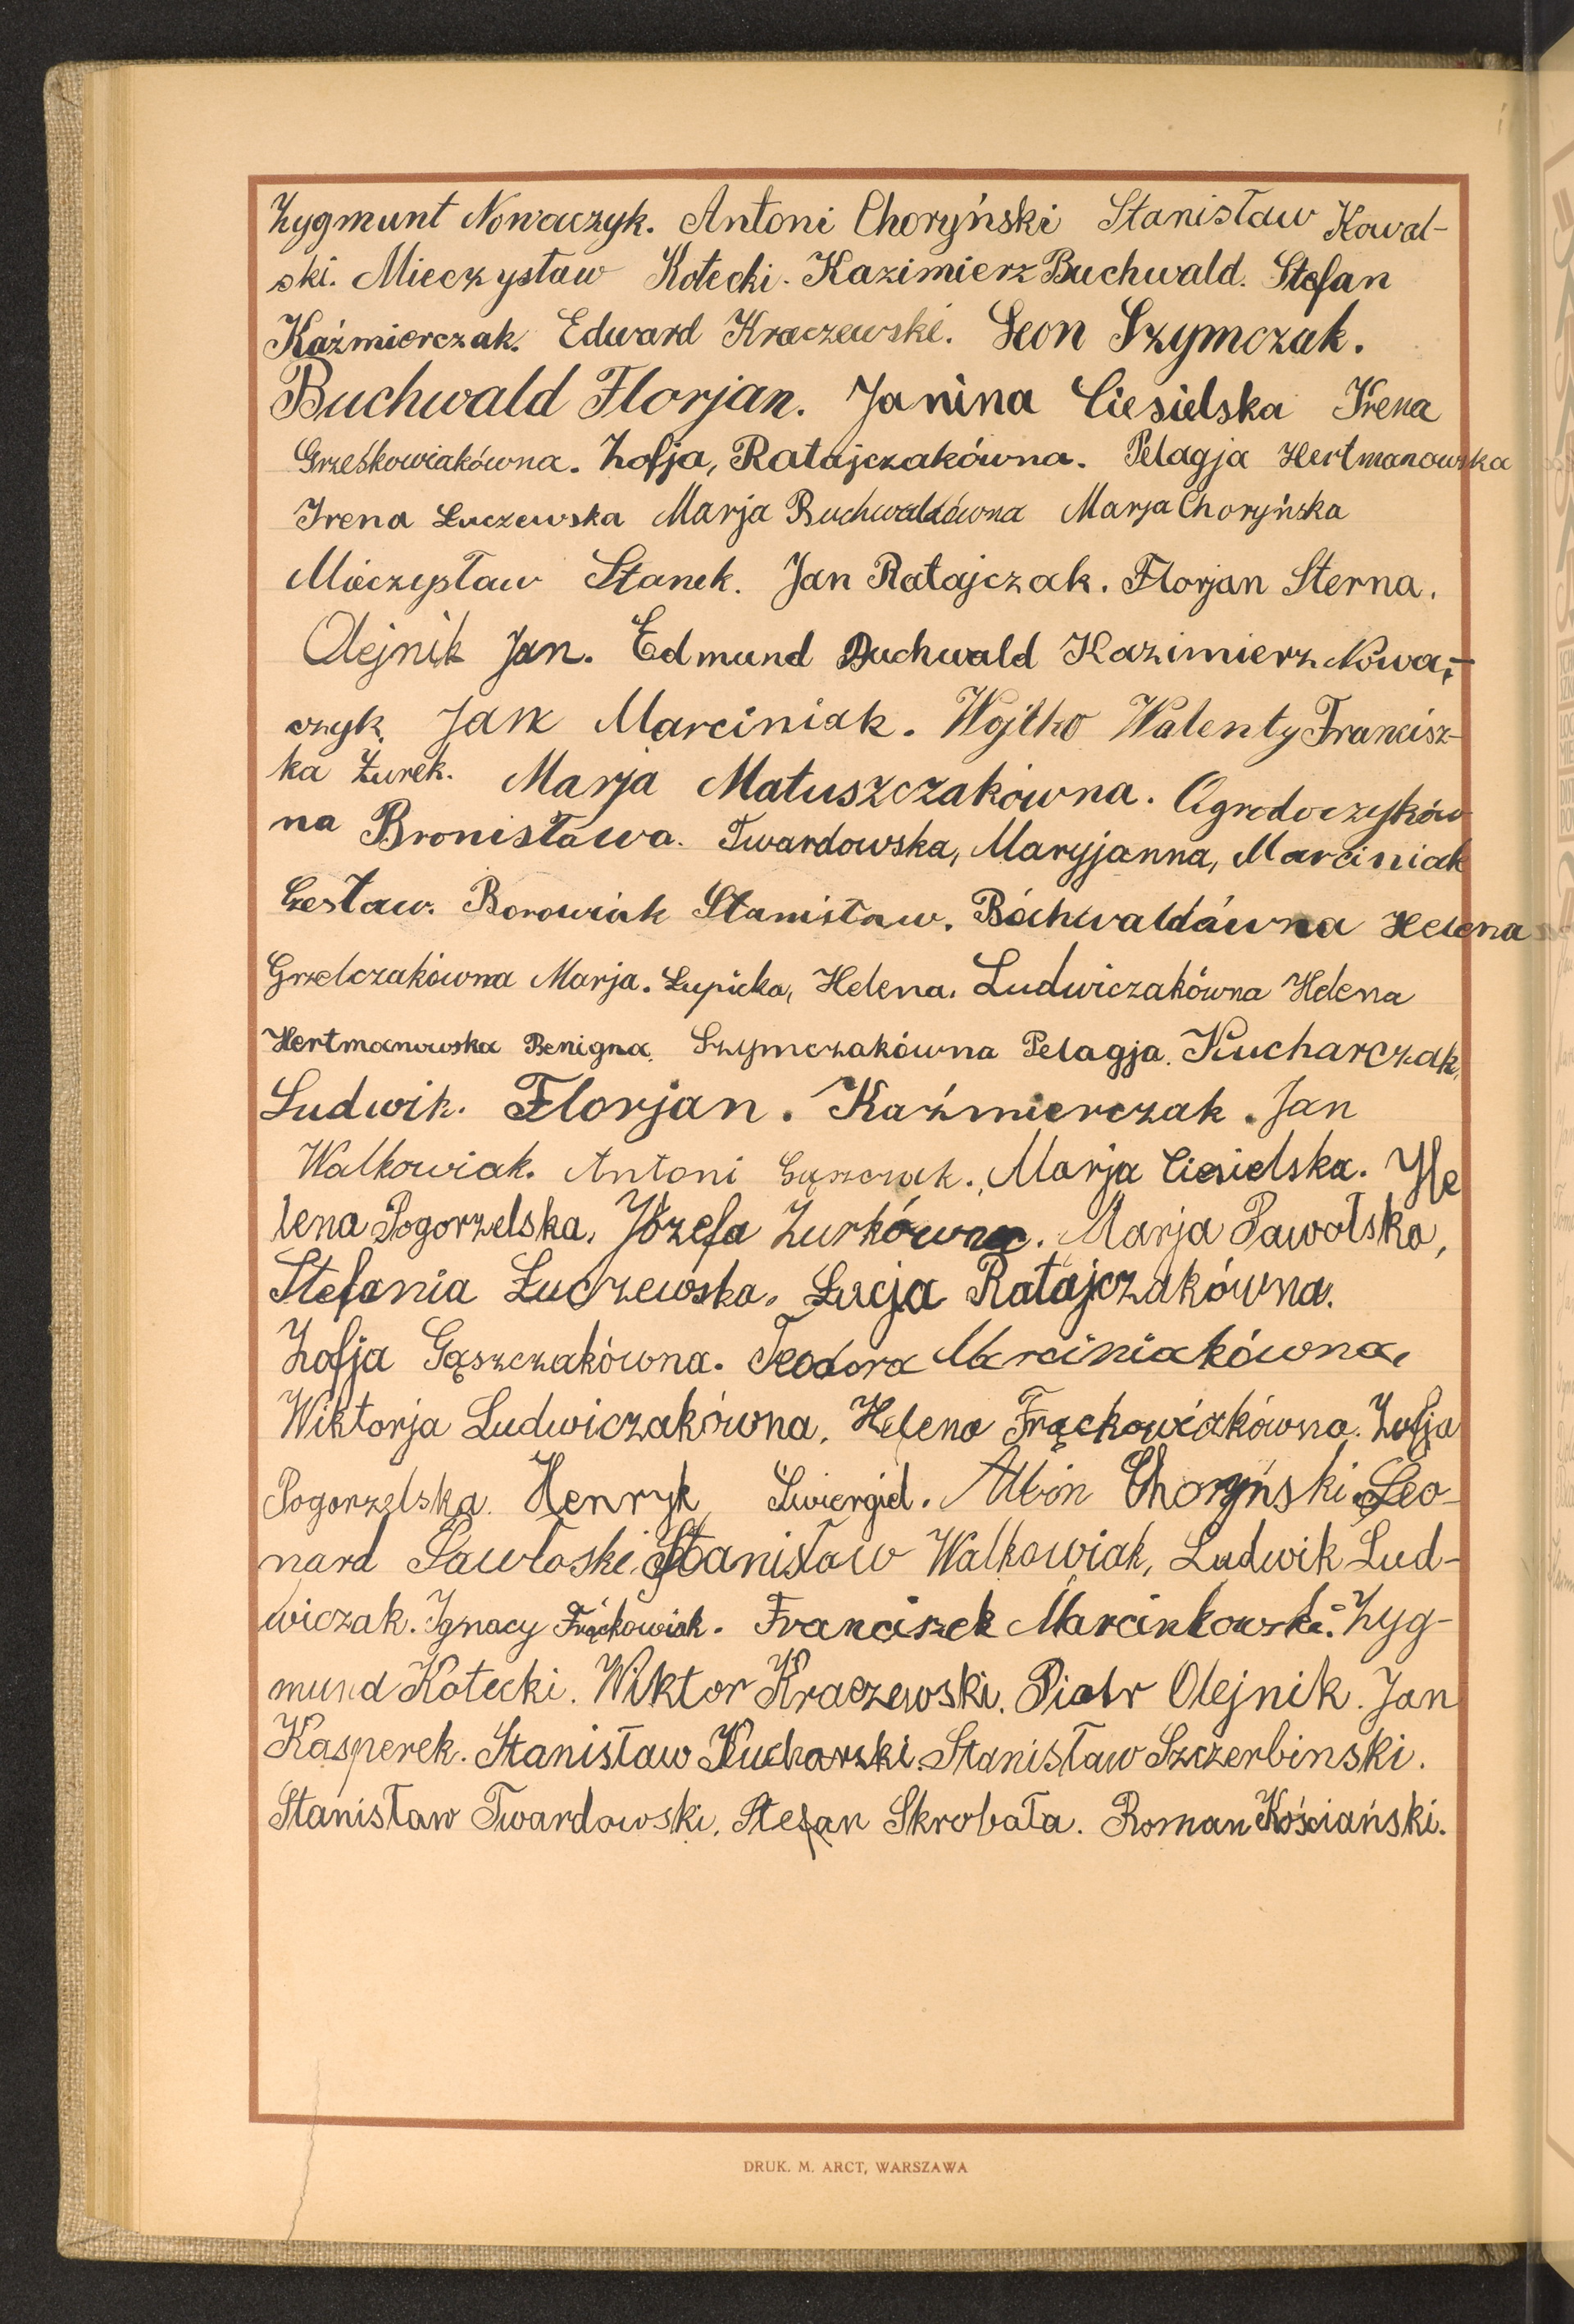 Zygmunt Nowaczyk. Antoni Choryński Stanisław Kowal-
ski. Mieczysław Kotecki. Kazimierz Buchwald. Stefan
Kaźmierczak. Edward Kraczewski. Leon Szymczak.
Buchwald Florjan. Janina Ciesielska Irena
Grześkowiakówna. Zofja, Ratajczakówna. Pelagja Hertmanowska
Irena Łuczewska Marja Buchwaldówna Marja Choryńska
Mieczysław Stanek. Jan Ratajczak. Florjan Sterna.
Olejnik Jan. Edmund Buchwald Kazimierz Nowa-
czyk. Jan Marciniak. Wojtko Walenty Francisz-
ka Żurek. Marja Matuszczakówna. Ogrodoczyków
na Bronisława. Twardowska, Maryjanna, Marciniak
Czesław. Borowiak Stanisław. Bóchwaldáwna Helena
Grzelczakówna Marja. Łupicka, Helena. Ludwiczakówna Helena
Hertmanowska Benigna. Szymczakówna Pelagja. Kucharczak,
Ludwik. Florjan. Kaźmierczak. Jan
Walkowiak. Antoni Gąszczak. Marja Ciesielska. He
lena Pogorzelska. Józefa Żurkówna. Marja Pawołska,
Stefania Łuczewska. Łucja Ratajczakówna.
Zofja Gąszczakówna. Teodora Marciniakówna,
Wiktorja Ludwiczakówna. Helena Frąckowiakówna. Zofja
Pogorzelska. Henryk Świergiel. Albin Choryński. Leo-
nard Pawłoski. Stanisław Walkowiak, Ludwik Lud-
wiczak. Ignacy Frąckowiak. Franciszek Marcinkowski. Zyg-
mund Kotecki. Wiktor Kraczewski. Piotr Olejnik. Jan
Kasperek. Stanisław Kucharski. Stanisław Szczerbinski.
Stanisław Twardowski. Stefan Skrobała. Roman Kościański.
DRUK. M. ARCT, WARSZAWA